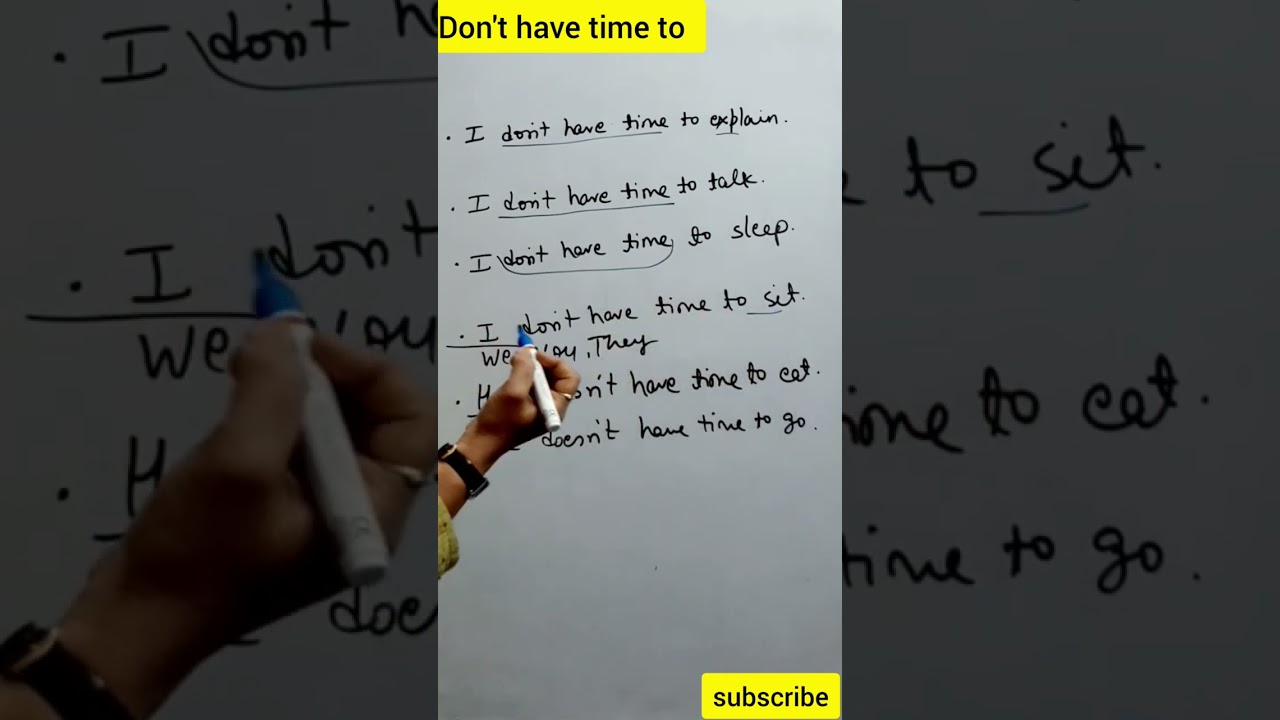 Don't have time to
. I don't have time to explain.
. I don't have time to talk.
. I don't have time to sleep.
. I don't have time to sit.
We They
. have time to eat.
doesn't have time to go.
subscribe